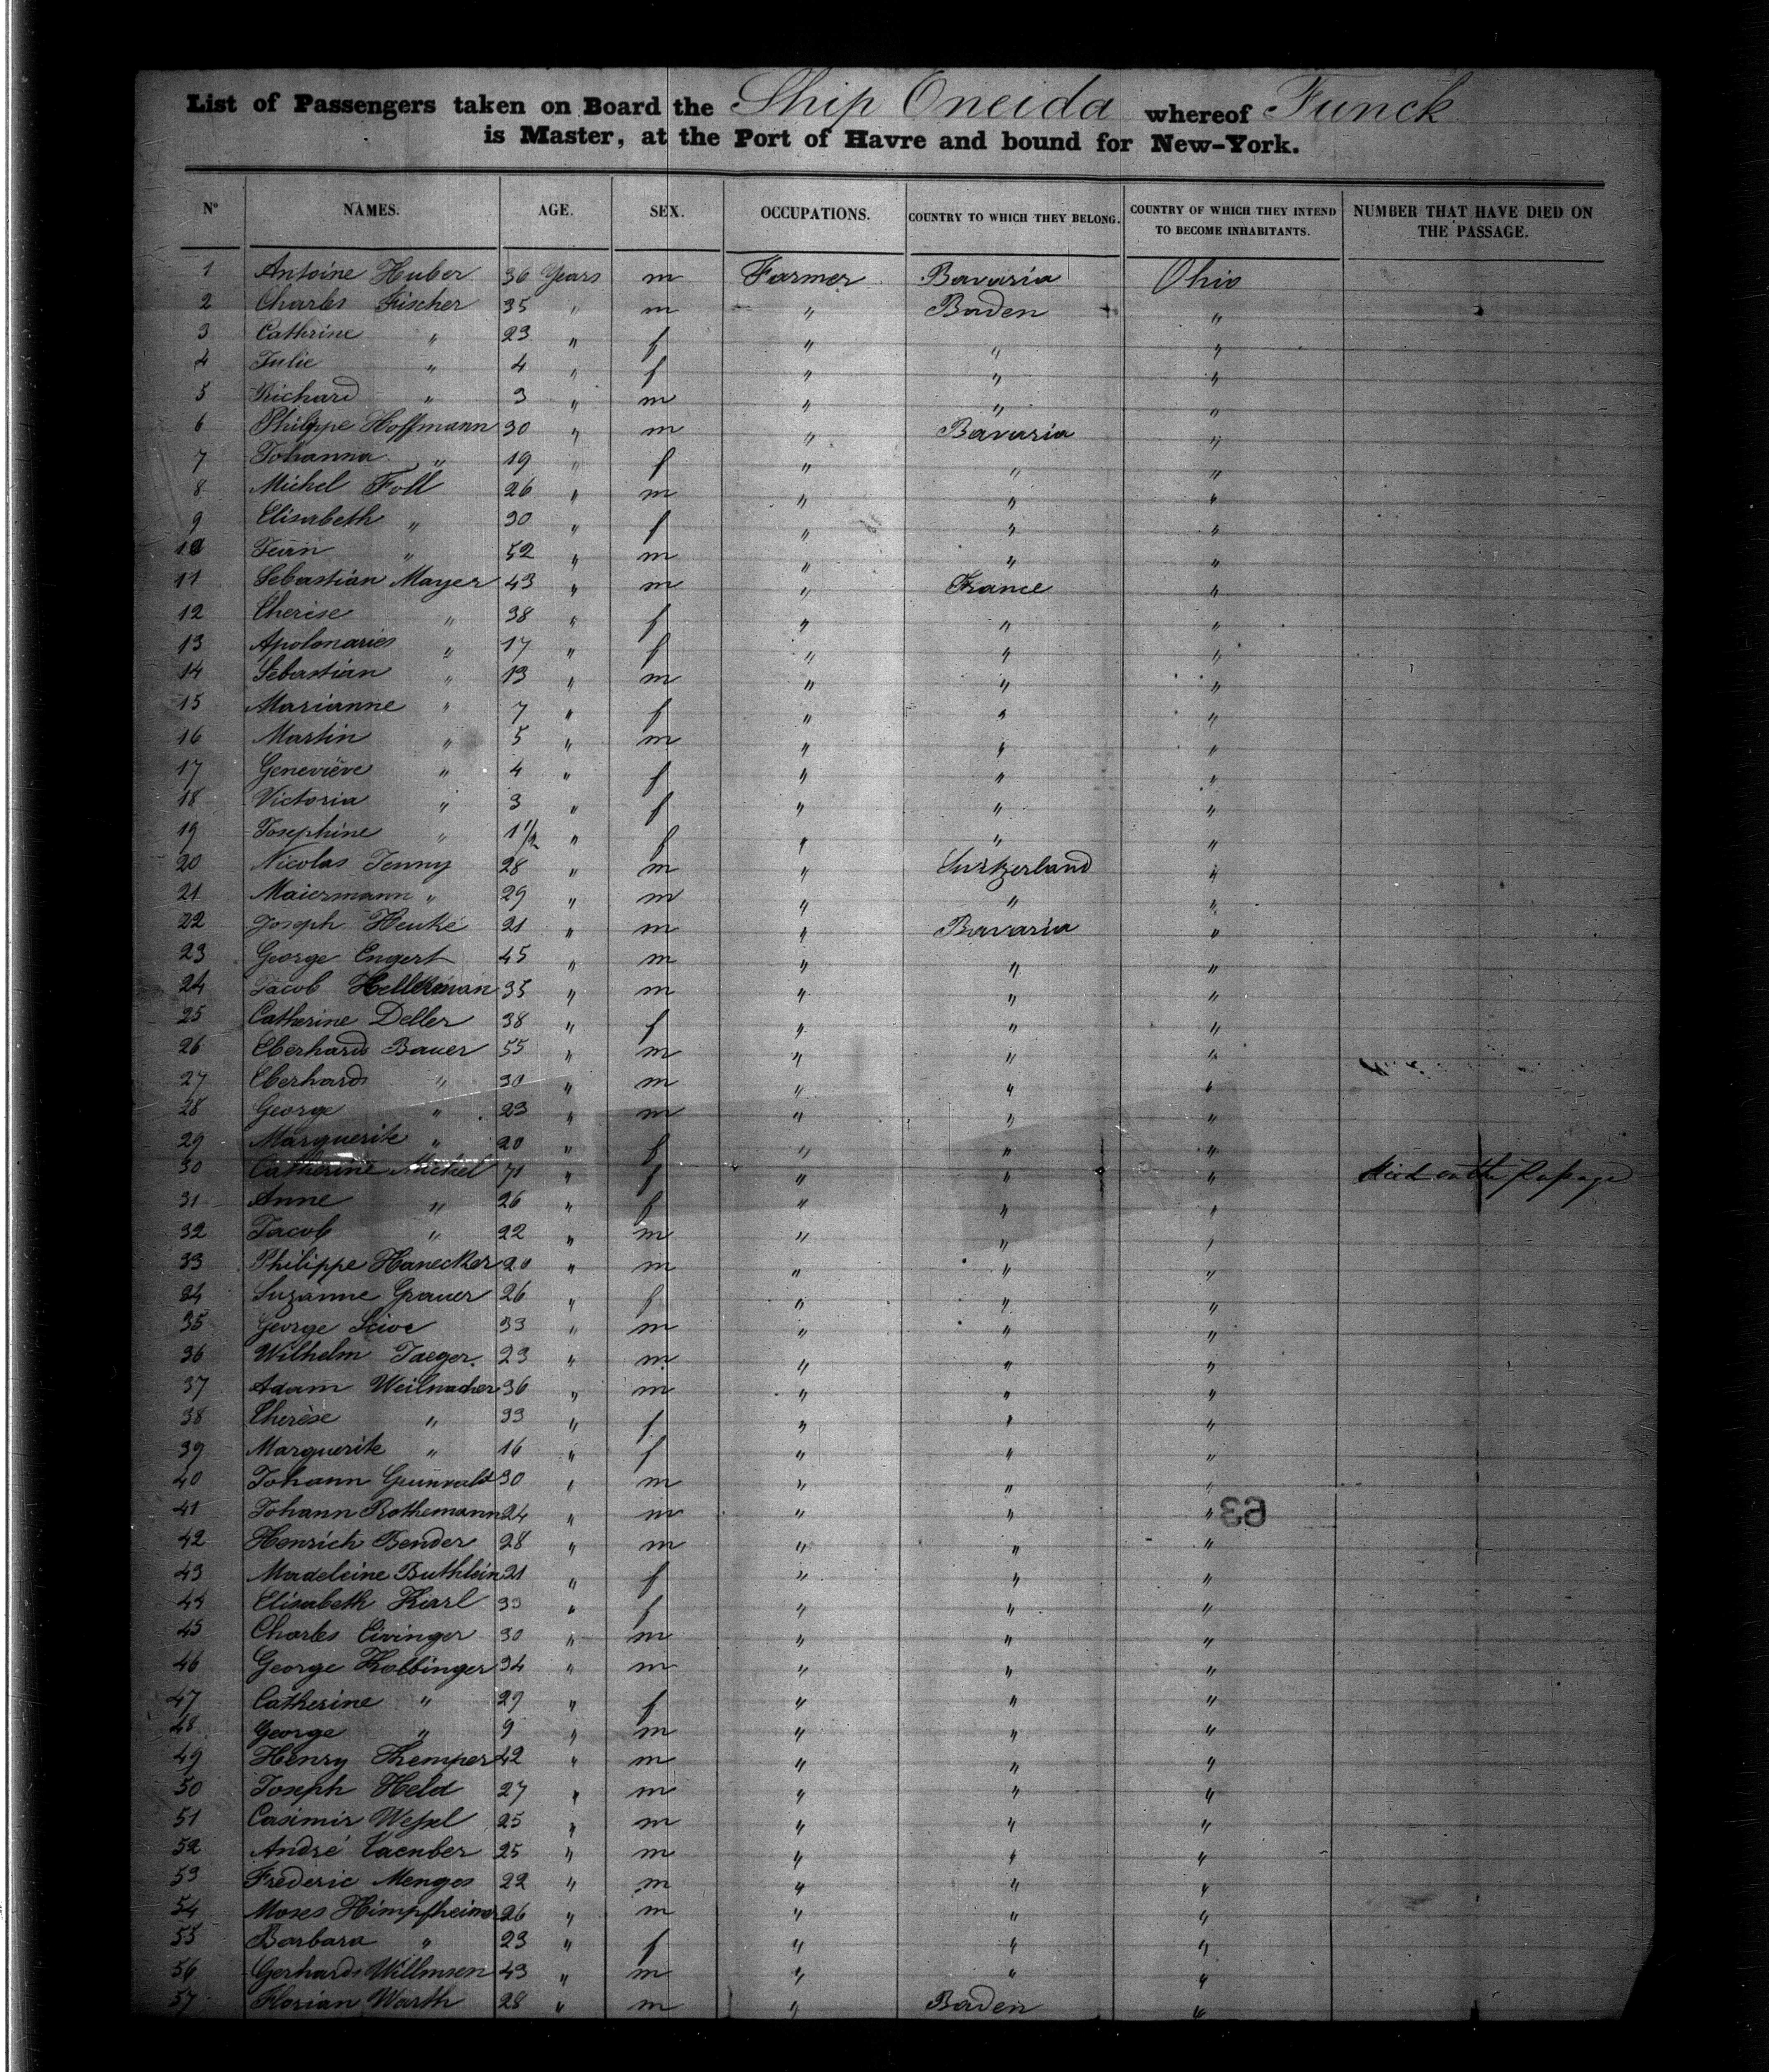 List of Passengers taken on Board the Ship Oneida whereof Funck
is Master, at the Port of Havre and bound for New-York.
Nº NAMES. AGE. SEX. OCCUPATIONS. COUNTRY TO WHICH THEY BELONG. COUNTRY OF WHICH THEY INTEND TO BECOME INHABITANTS. NUMBER THAT HAVE DIED ON THE PASSAGE.
1 Antoine Huber 36 Years m Farmer Bavaria Ohio
2 Charles Fischer 35 " m " Baden "
3 Cathrine " 23 " f " " "
4 Julie " 4 " f " " "
5 Richard " 3 " m " " "
6 Philippe Hoffmann 30 " m " Bavaria "
7 Johanna " 19 " f " " "
8 Michel Foll 26 " m " " "
9 Elisabeth " 30 " f " " "
10 Jean " 52 " m " " "
11 Sebastian Mayer 43 " m " France "
12 Therese " 38 " f " " "
13 Apolonaries " 17 " f " " "
14 Sebastian " 13 " m " " "
15 Marianne " 7 " f " " "
16 Martin " 5 " m " " "
17 Geneviève " 4 " f " " "
18 Victoria " 3 " f " " "
19 Josephine " 1 1/2 " f " " "
20 Nicolas Jenny 28 " m " Switzerland "
21 Maiermann " 29 " m " " "
22 Joseph Henké 21 " m " Bavaria "
23 George Engert 45 " m " " "
24 Jacob Hellerman 35 " m " " "
25 Catherine Deller 38 " f " " "
26 Eberhard Bauer 55 " m " " "
27 Eberhard " 30 " m " " "
28 George " 23 " m " " "
29 Marguerite " 20 " f " " "
30 Catherine Michel 71 " f " " " died on the Passage
31 Anne " 26 " f " " "
32 Jacob " 22 " m " " "
33 Philippe Hanecker 20 " m " " "
34 Suzanne Grauer 26 " f " " "
35 George 33 " m " " "
36 Wilhelm Jaeger. 23 " m " " "
37 Adam Weilnacher 36 " m " " "
38 Therèse " 33 " f " " "
39 Marguerite " 16 " f " " "
40 Johann Grunvald 30 " m " " "
41 Johann Rothemann 24 " m " " "
63
42 Henrich Bender 28 " m " " "
43 Madeleine Buthlein 21 " f " " "
44 Elisabeth Karl 33 " f " " "
45 Charles Eivinger 30 " m " " "
46 George Kolbinger 34 " m " " "
47 Catherine " 29 " f " " "
48 George " 9 " m " " "
49 Henry Kemper 42 " m " " "
50 Joseph Held 27 " m " " "
51 Casimir Wessel 25 " m " " "
52 André 25 " m " " "
53 Frederic Menges 22 " m " " "
54 Moses Himpfheimer 26 " m " " "
55 Barbara " 23 " f " " "
56 Gerhard Willmsen 43 " m " " "
57 Florian Warth 28 " m " Baden "